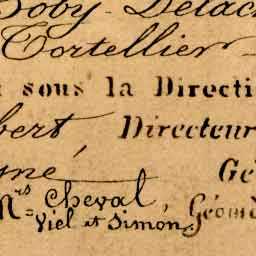 Boby-Delac
Cortellier
sous la Directi
bert Directeur
né Gé
Mrs Cheval,
Viel et Simon, Géomè